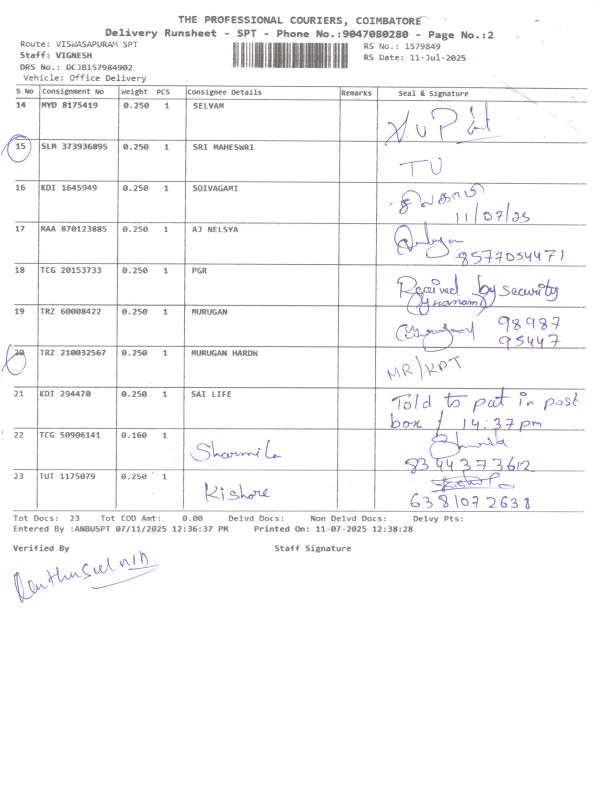 THE PROFESSIONAL COURIERS, COIMBATORE
Delivery Runsheet - SPT - Phone No.:9047080280 - Page No.:2
Route: VISWASAPURAM SPT RS No.: 1579849
Staff: VIGNESH RS Date: 11-Jul-2025
DRS No.: DCJB157984902
Vehicle: Office Delivery
S No Consignment No Weight PCS Consignee Details Remarks Seal & Signature
14 MYD 8175419 0.250 1 SELVAM
15 SLM 373936895 0.250 1 SRI MAHESWRI
TU
16 KDI 1645949 0.250 1 SOIVAGAMI
சிவகாமி
11/07/25
17 MAA 870123885 0.250 1 AJ NELSYA
8577054471
18 TCG 20153733 0.250 1 PGR
Received by security
19 TRZ 60008422 0.250 1 MURUGAN
98987
95447
20 TRZ 210032567 0.250 1 MURUGAN HARDW
MR/KPT
21 KDI 294470 0.250 1 SAI LIFE
Told to put in post
box / 14:37pm
22 TCG 50906141 0.160 1
Sharmila
8344373612
23 TUT 1175079 0.250 1
Kishore
6381072638
Tot Docs: 23 Tot COD Amt: 0.00 Delvd Docs: Non Delvd Docs: Delvy Pts:
Entered By :ANBUSPT 07/11/2025 12:36:37 PM Printed On: 11-07-2025 12:38:28
Verified By Staff Signature